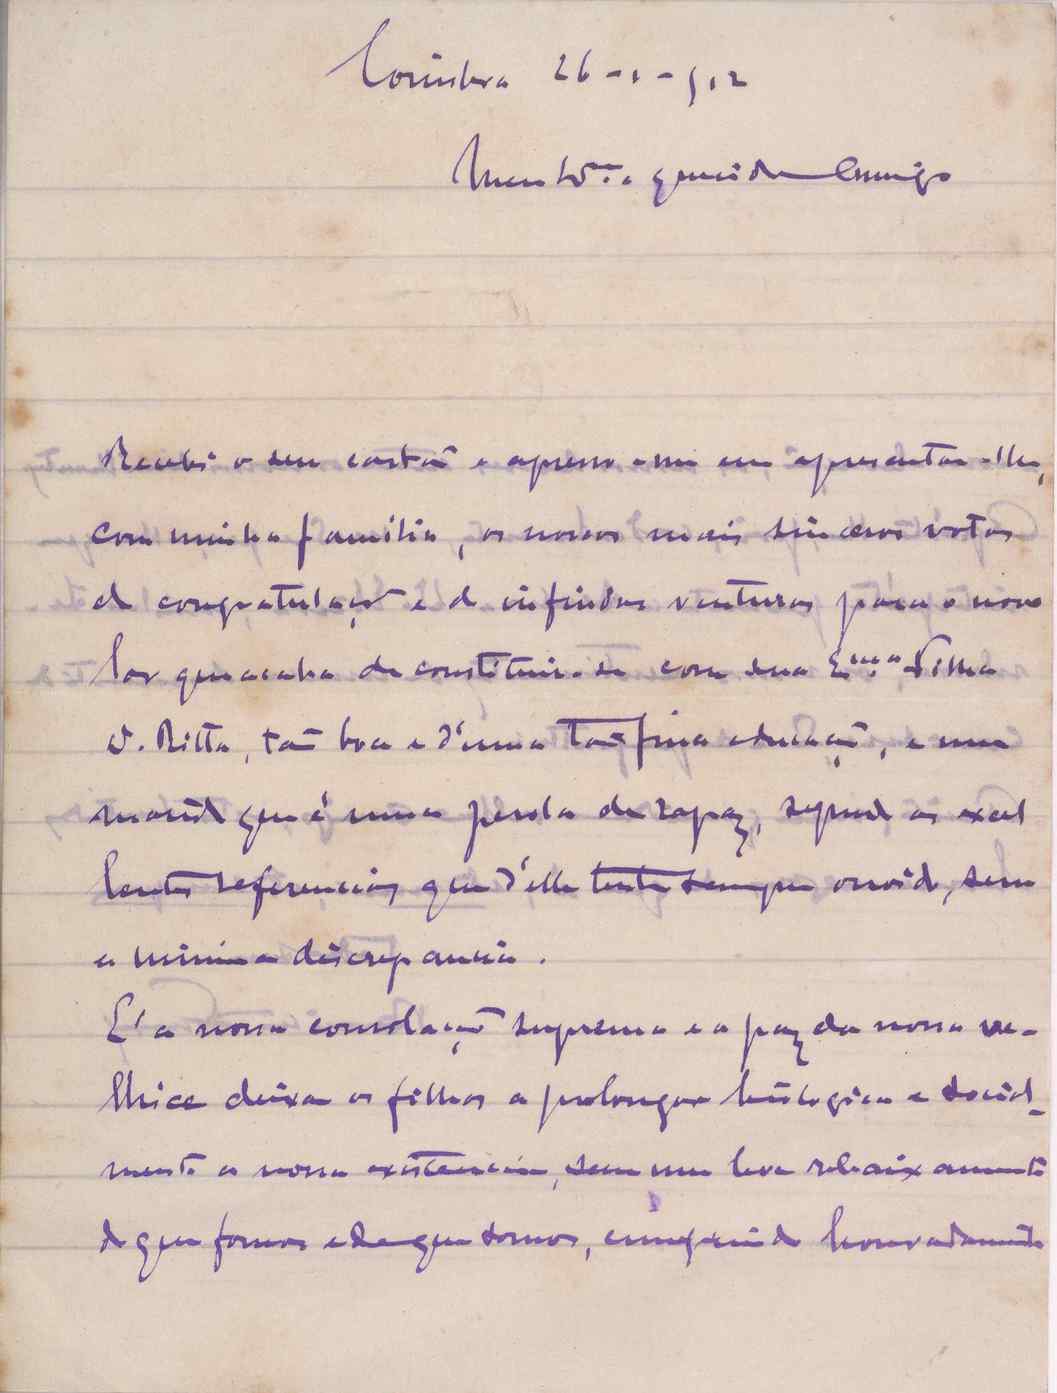 Coimbra 26-1-912
Meu bom e querido Amigo
Recebi o seu cartão e apresso-me em apresentar-lhe,
com minha familia, os nossos mais sinceros votos
de congratulação e de infindas venturas para o novo
lar que acaba de constituir-se com sua Exma Filha
D. Ritta, tão boa e d'uma tão fina educação, e um
marido que é uma perola de rapaz, segundo as excel
lentes referencias que d'elle tenho sempre ouvido, sem
a minima discrepancia.
E' a nossa consolação suprema e a paz da nossa ve-
lhice deixar os filhos a prolongar biologica e social-
mente a nossa existencia, sem um leve rebaixamento
do que fomos e do que somos, cumprindo honradamente